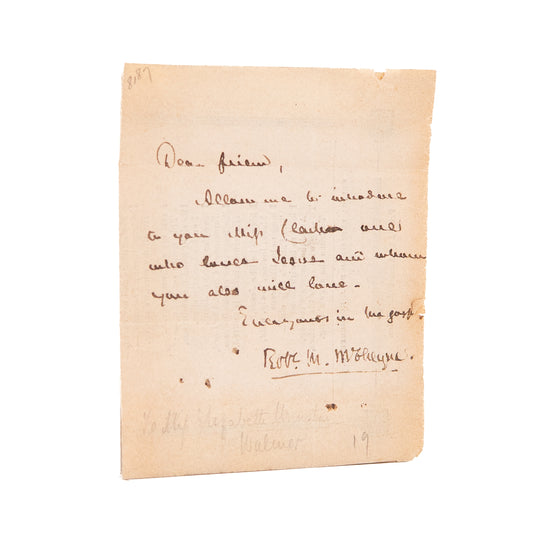 8187
Dear friend,
Allow me to introduce
to you Miss Clarke one
who loves Jesus and whom
you also will love.
Ever yours in the gosp.
Robt. M. McCheyne.
To Miss Elizabeth
Walmer 19